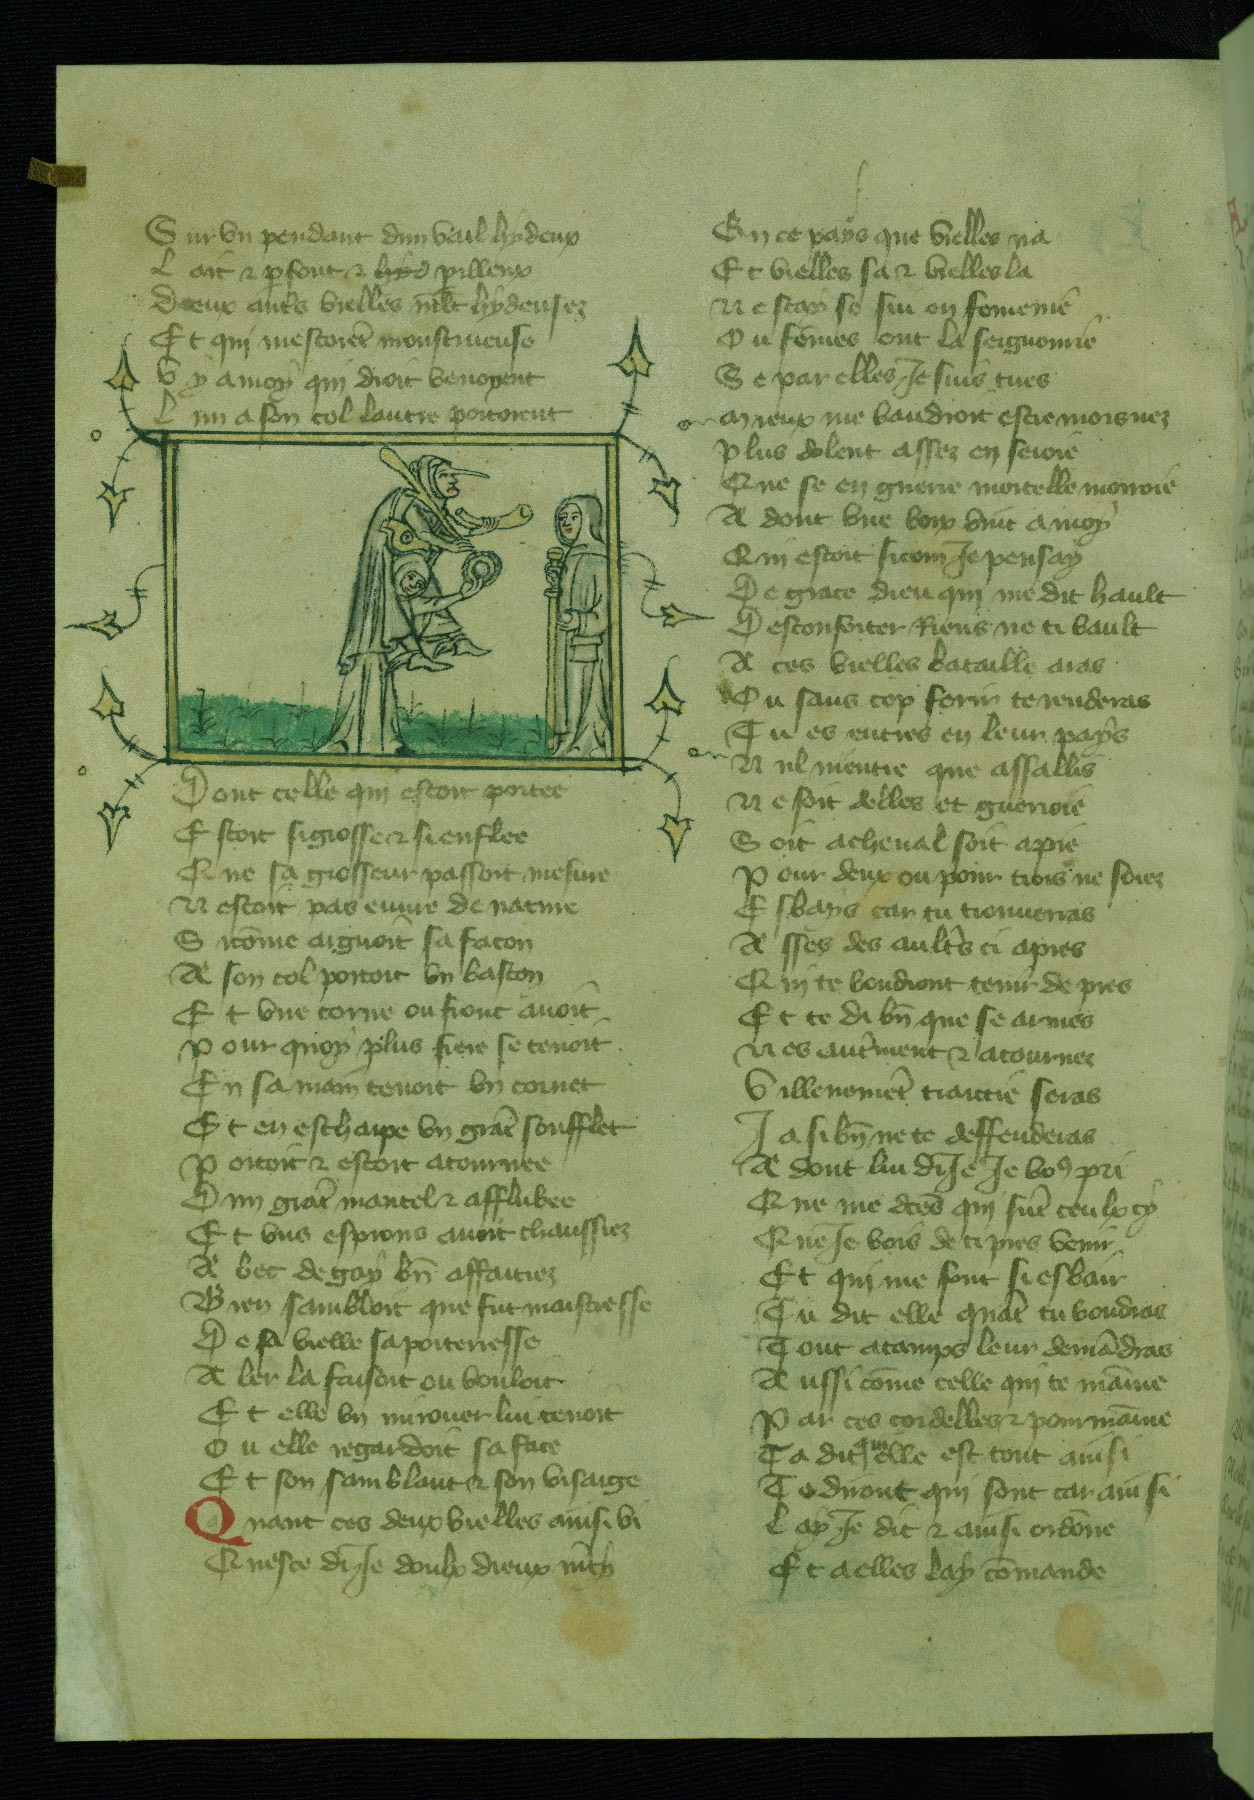 Sur vn pendant dun vaul hydeux
Lait & parfont & pilleux
Deux autrs vielles mlt hydeusez
Et qui mestoiet monstrueuse
Vy a moy qui droit venoyent
Lun a son col lautre portoient
Dont celle qui estoit portee
Estoit si grosse & si enflee
Que sa grosseur passoit mesure
Nestoit pas euure de nature
Sicome aignoit sa facon
A son col portoit vn baston
Et vne corne ou front auoit
Pour quoy plus fiere se tenoit
En sa main tenoit vn cornet
Et en escharpe vn grat soufflet
Portoit & estoit atournee
Dun grat mantel & afflubee
Et vns esprons auoit chaussiez
A bec de gay bn affaitiez
Bien sambloit que fut maistresse
De sa vielle sa porteresse
Aler la faisoit ou vouloit
Et elle vn mirouer lui tenoit
Ou elle regardoit sa face
Et son samblant & son visaige
Quant ces deux vielles ainsi vi
Quesce di Je doulx dieux
En ce pays que vielles na
Et vielles sa & vielles la
Ne scay se sui en femenie
Ou femes ont la seignourie
Se par elles Je suis tues
Mieux me vaudroit estre mors nez
Plus dolent assez en seroie
Que se en guerre mortelle morroie
A dont vne voix vint a moy
Qui estoit sicom Je pensay
De grace dieu qui me dit hault
Desconforter Riens ne ti vault
A ces vielles bataille aras
Ou sans cop ferir te renderas
Tu es entres en leur pays
Nul nientre que assallis
Ne soit delles et guerroie
Soit a cheual soit a pie
Pour deux ou pour trois ne soiez
Esbays car tu trouueras
Asses des aultrs ci apres
Qui te voudront tenir de pres
Et te di bn que se armes
Nes autment & atournez
Villenemet traictie seras
Ja si bn ne te deffenderas
A dont lui di Je Je vos pri
Que me dtes qui sut ceulx cy
Que Je vois de ci pres venir
Et qui me font si esbair
Tu dit elle quat tu voudras
Tout a tamps leur demadras
Aussi come celle qui te maine
Par ces cordelles & pourmaine
Ta dit qui elle est tout ainsi
Te diront qui sont car ainsi
Lay Je dit & ainsi ordone
Et a elles lay comande